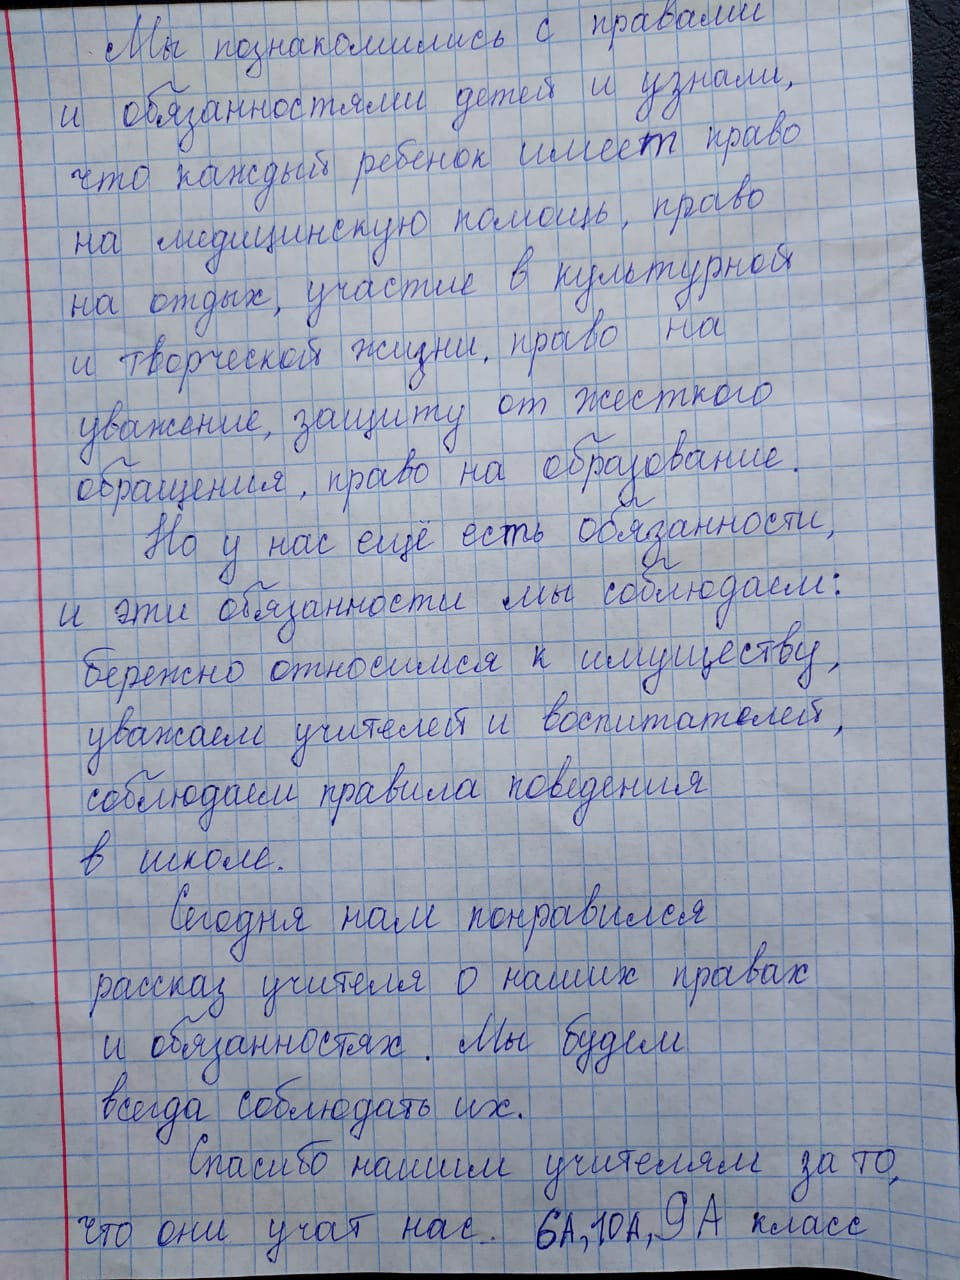 Мы познакомились с правами
и обязанностями детей и узнали,
что каждый ребенок имеет право
на медицинскую помощь, право
на отдых, участие в культурной
и творческой жизни, право на
уважение, защиту от жесткого
обращения, право на образование.
Но у нас ещё есть обязанности,
и эти обязанности мы соблюдаем:
бережно относимся к имуществу,
уважаем учителей и воспитателей,
соблюдаем правила поведения
в школе.
Сегодня нам понравился
рассказ учителя о наших правах
и обязанностях. Мы будем
всегда соблюдать их.
Спасибо нашим учителям за то,
что они учат нас. 6А, 10А, 9А класс